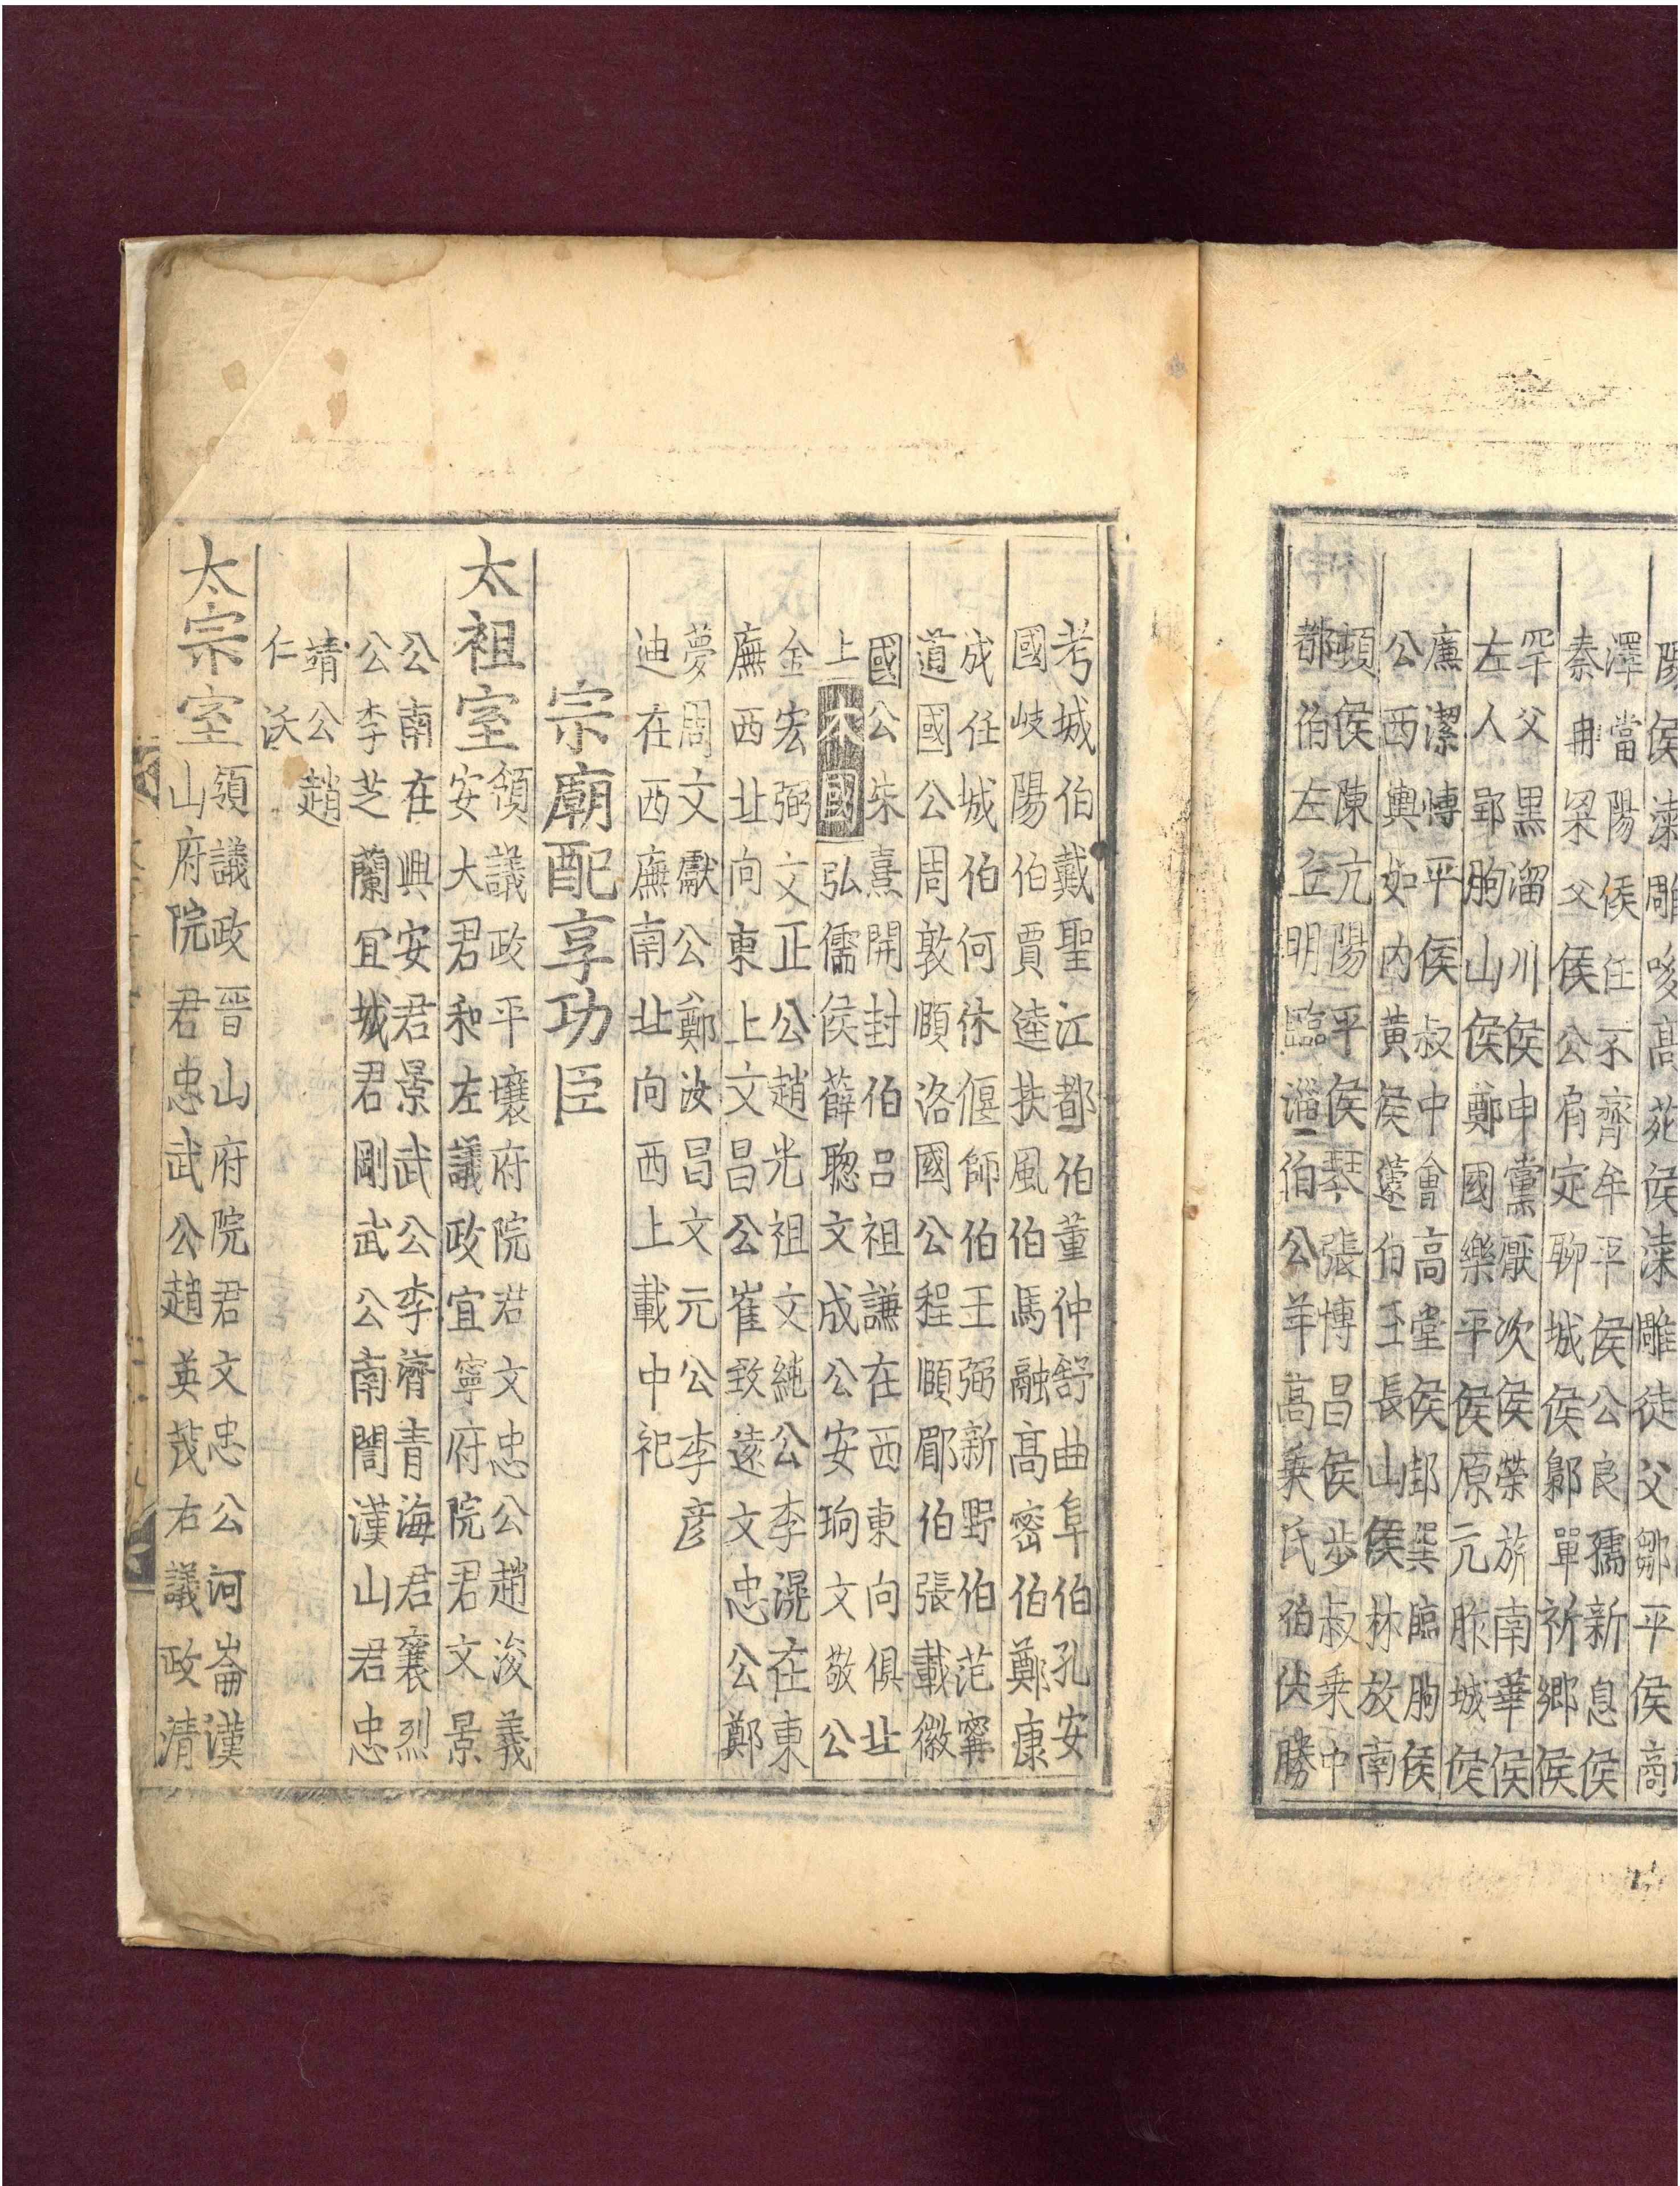 陽侯漆雕哆高苑侯漆雕徒父鄒平侯商
澤當陽侯任不齊牟平侯公良孺新息侯
秦冉梁父侯公肩定聊城侯鄡單祈鄉侯
罕父黑淄川侯申黨厭次侯榮旂南華侯
左人郢朐山侯鄭國樂平侯原亢胙城侯
廉潔博平侯叔中會高堂侯邽巽臨朐侯
公西輿如內黃侯蘧伯玉長山侯林放南
頓侯陳亢陽平侯琴張博昌侯步叔乘中
都伯左丘明臨淄伯公羊高乘氏伯伏勝
考城伯戴聖江都伯董仲舒曲阜伯孔安
國岐陽伯賈逵扶風伯馬融高密伯鄭康
成任城伯何休偃師伯王弼新野伯范寗
道國公周敦頤洛國公程頤郿伯張載徽
國公朱熹開封伯呂祖謙在西東向俱北
上本國弘儒侯薛聰文成公安珦文敬公
金宏弼文正公趙光祖文純公李滉在東
廡西北向東上文昌公崔致遠文忠公鄭
夢周文獻公鄭汝昌文元公李彦
迪在西廡南北向西上載中祀
宗廟配享功臣
太祖室領議政平壤府院君文忠公趙浚義
安大君和左議政宜寧府院君文景
公南在興安君景武公李濟青海君襄烈
公李芝蘭宜城君剛武公南誾漢山君忠
靖公趙
仁沃
太宗室領議政晋山府院君文忠公河崙漢
山府院君忠武公趙英茂右議政清